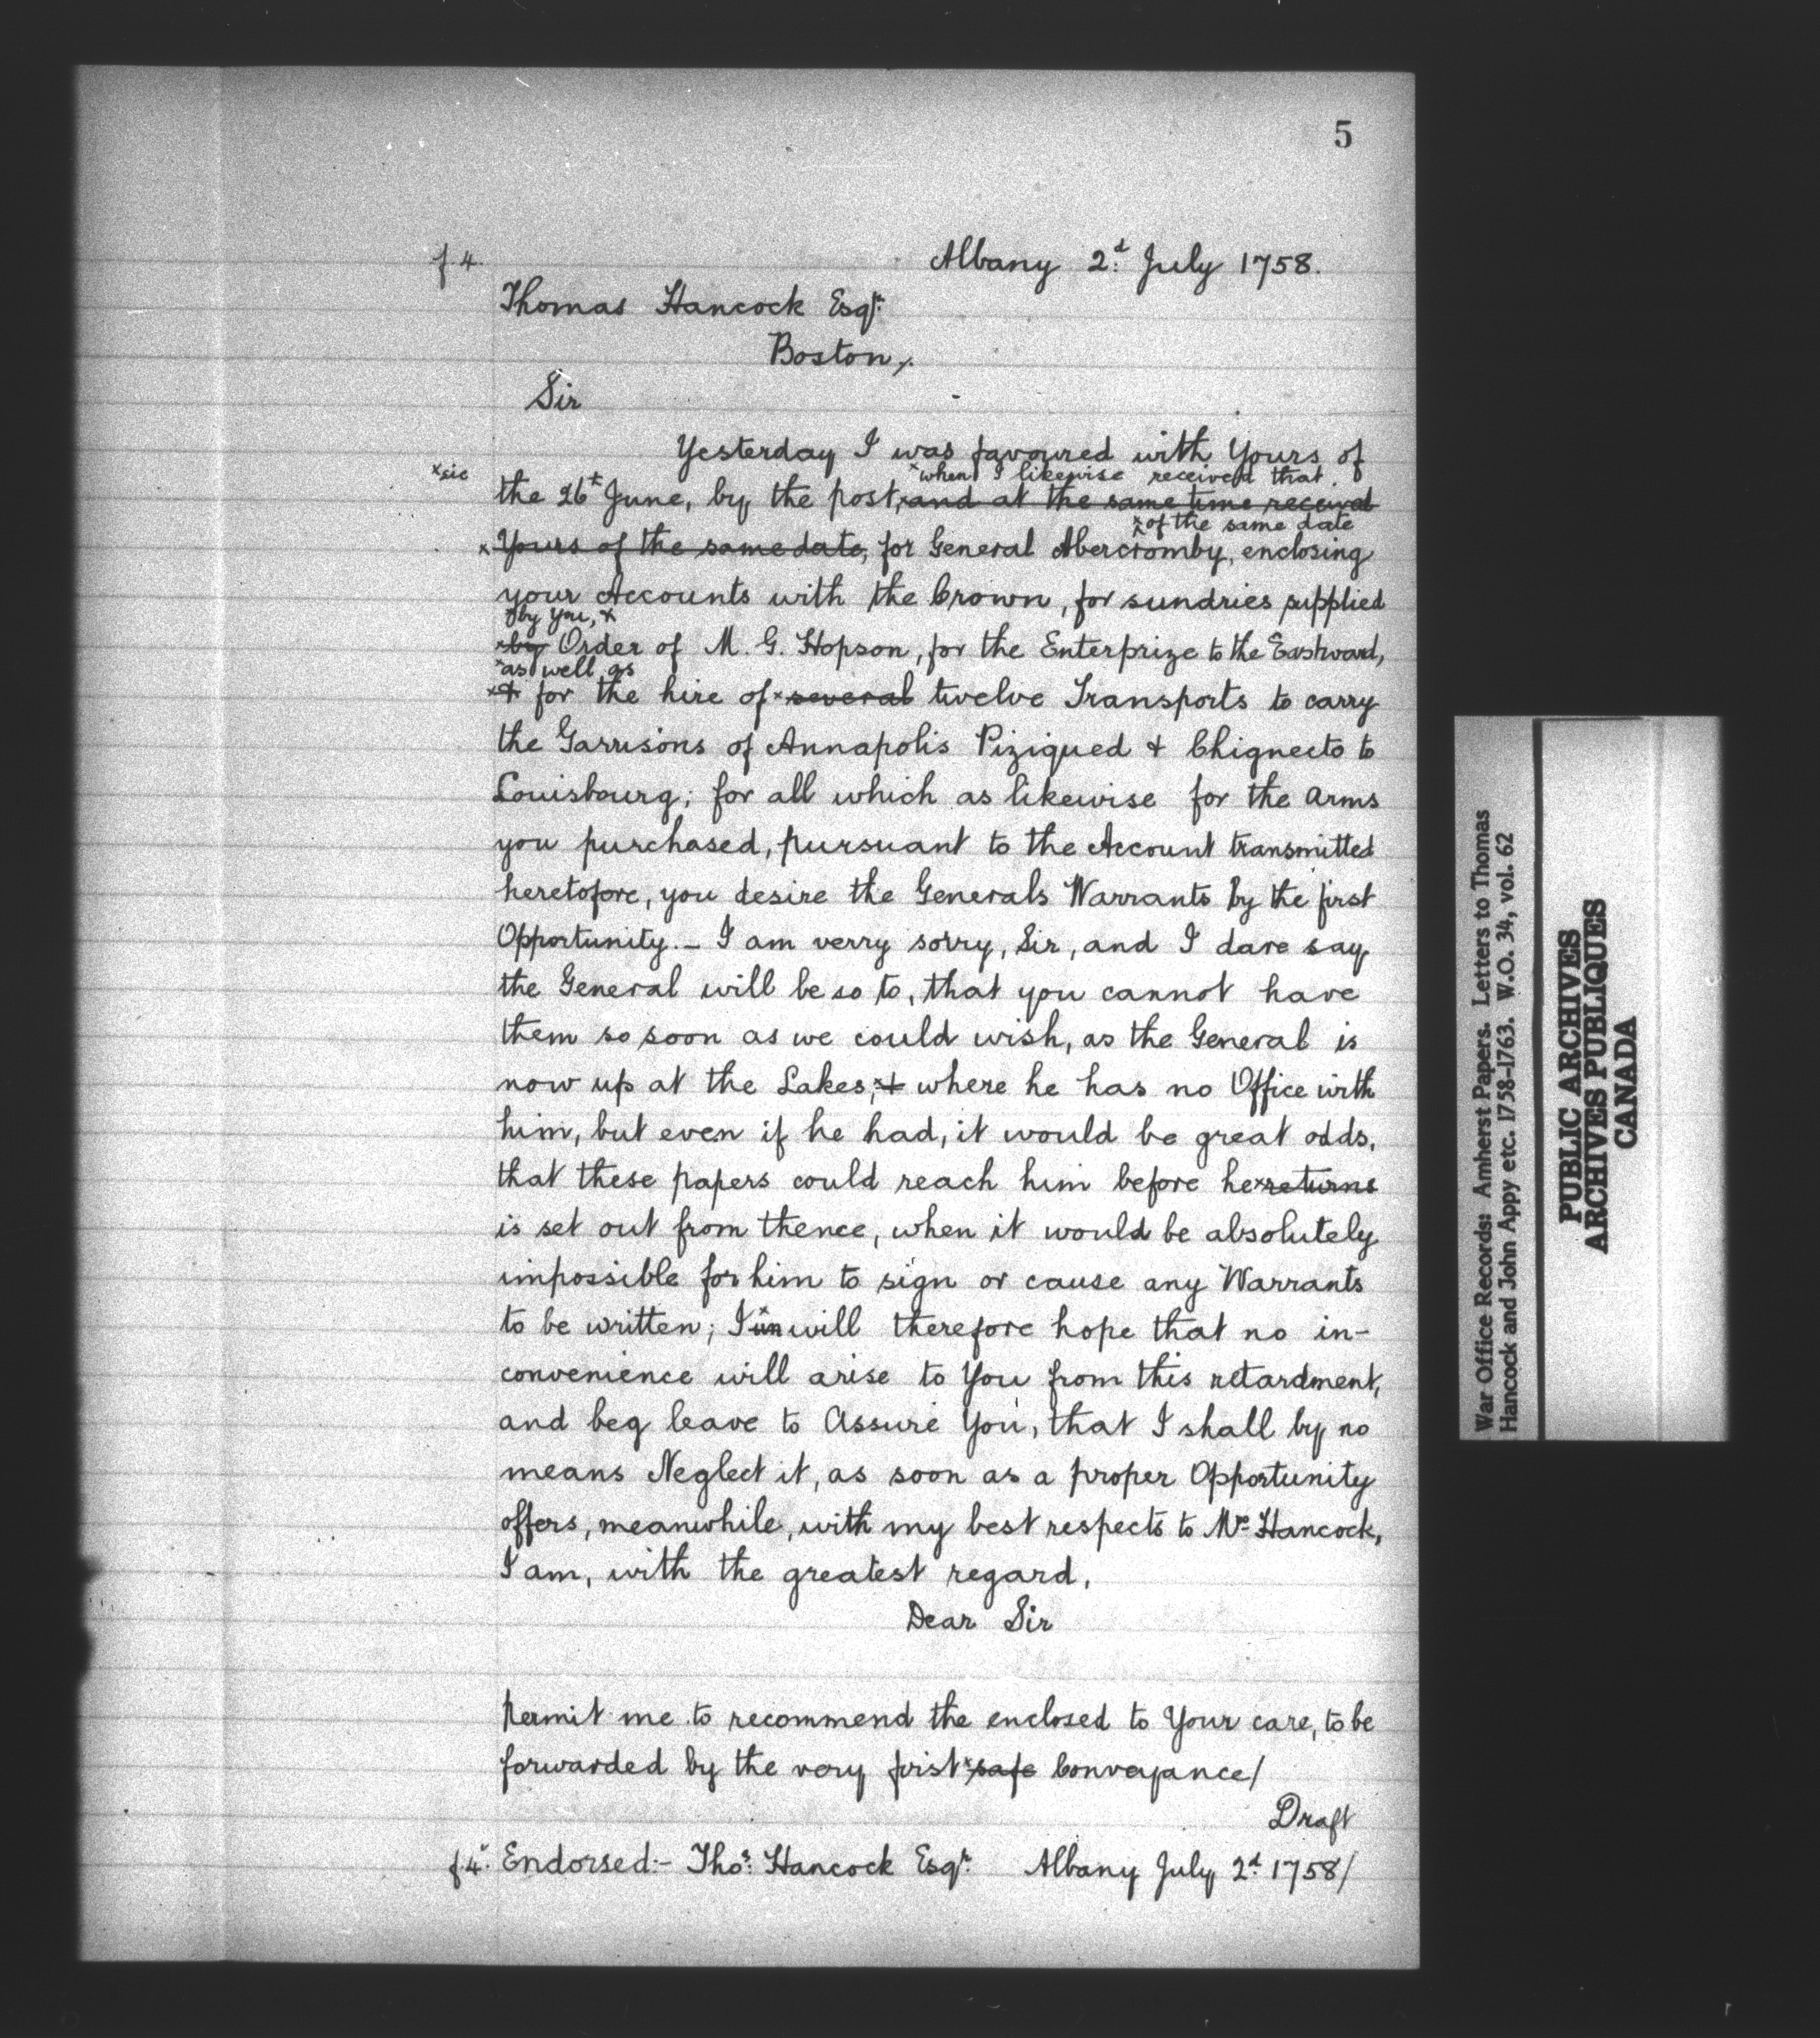 5
f. 4. Albany 2.d July 1758.
Thomas Hancock Esqr.
Boston,
Sir
Yesterday I was favoured with Yours of
x sic
x when I likewise received that.
the 26th June, by the post, x and at the same time received
x of the same date
x Yours of the same date, for General Abercromby, enclosing
your Accounts with the Crown, for sundries supplied
x by You, x
x by Order of M. G. Hopson, for the Enterprize to the Eastward,
x as well as
x & for the hire of x several twelve Transports to carry
the Garrisons of Annapolis Piziqued & Chignecto to
Louisbourg; for all which as likewise for the arms
you purchased, pursuant to the Account transmitted
heretofore, you desire the Generals Warrants by the first
Opportunity. – I am verry sorry, Sir, and I dare say
the General will be so to, that you cannot have
them so soon as we could wish, as the General is
now up at the Lakes, x & where he has no Office with
him, but even if he had, it would be great odds,
that these papers could reach him before he x returns
is set out from thence, when it would be absolutely
impossible for him to sign or cause any Warrants
to be written; I x un will therefore hope that no in-
convenience will arise to You from this retardment,
and beg leave to Assure You, that I shall by no
means Neglect it, as soon as a proper Opportunity
offers, meanwhile, with my best respects to Mrs Hancock,
I am, with the greatest regard,
Dear Sir
permit me to recommend the enclosed to Your care, to be
forwarded by the very first x safe Conveyance/
Draft
f. 4v. Endorsed:- Thos: Hancock Esqr. Albany July 2.d 1758/
War Office Records: Amherst Papers. Letters to Thomas
Hancock and John Appy etc. 1758-1763. W.O. 34, vol. 62
PUBLIC ARCHIVES
ARCHIVES PUBLIQUES
CANADA